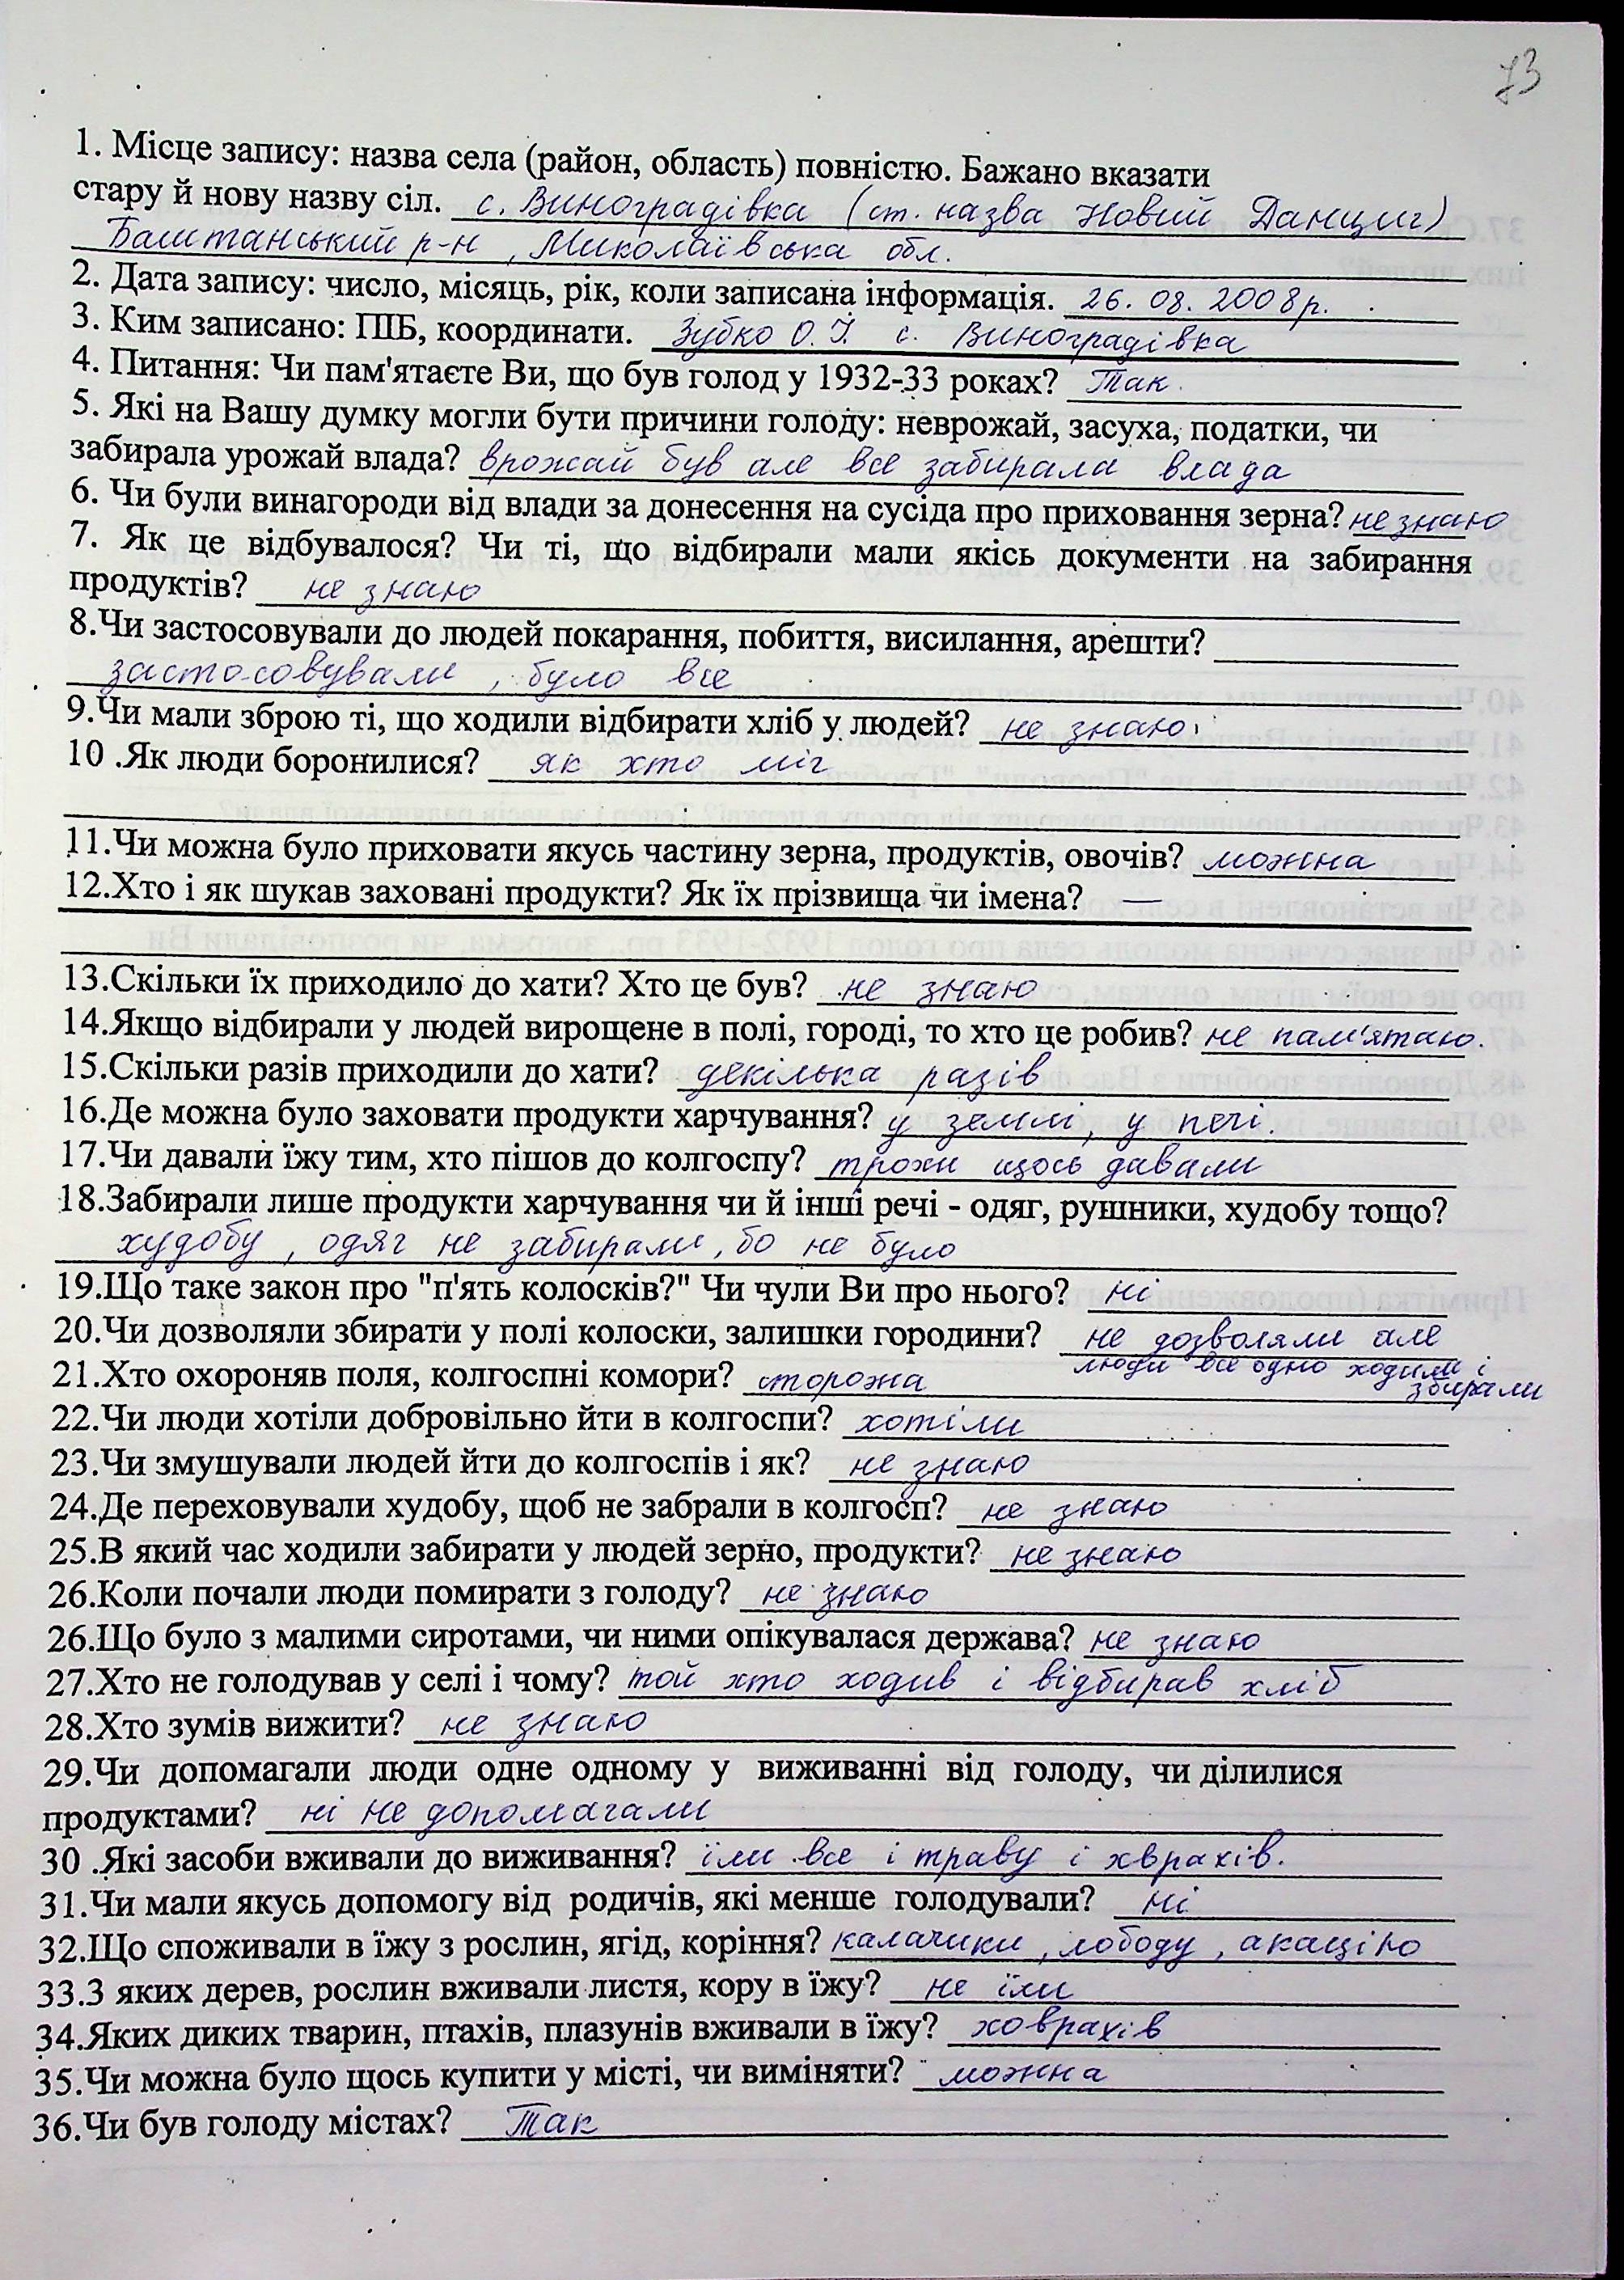 73
1. Місце запису: назва села (район, область) повністю. Бажано вказати
стару й нову назву сіл. с. Виноградівка (ст. назва Новий Данциг)
Баштанський р-н, Миколаївська обл.
2. Дата запису: число, місяць, рік, коли записана інформація. 26. 08. 2008р.
3. Ким записано: ПІБ, координати. Зубко О. І. с. Виноградівка
4. Питання: Чи пам'ятаєте Ви, що був голод у 1932-33 роках? Так.
5. Які на Вашу думку могли бути причини голоду: неврожай, засуха, податки, чи
забирала урожай влада? врожай був але все забирала влада
6. Чи були винагороди від влади за донесення на сусіда про приховання зерна? не знаю
7. Як це відбувалося? Чи ті, що відбирали мали якісь документи на забирання
продуктів? не знаю
8.Чи застосовували до людей покарання, побиття, висилання, арешти?
застосовували, було все
9.Чи мали зброю ті, що ходили відбирати хліб у людей? не знаю
10 .Як люди боронилися? як хто міг
11.Чи можна було приховати якусь частину зерна, продуктів, овочів? можна
12.Хто і як шукав заховані продукти? Як їх прізвища чи імена? —
13.Скільки їх приходило до хати? Хто це був? не знаю
14.Якщо відбирали у людей вирощене в полі, городі, то хто це робив? не пам'ятаю.
15.Скільки разів приходили до хати? декілька разів
16.Де можна було заховати продукти харчування? у землі, у печі.
17.Чи давали їжу тим, хто пішов до колгоспу? трохи щось давали
18.Забирали лише продукти харчування чи й інші речі - одяг, рушники, худобу тощо?
худобу, одяг не забирали, бо не було
19.Що таке закон про "п'ять колосків?" Чи чули Ви про нього? ні
20.Чи дозволяли збирати у полі колоски, залишки городини? не дозволяли але
люди все одно ходили і
збирали
21.Хто охороняв поля, колгоспні комори? сторожа
22.Чи люди хотіли добровільно йти в колгоспи? хотіли
23.Чи змушували людей йти до колгоспів і як? не знаю
24.Де переховували худобу, щоб не забрали в колгосп? не знаю
25.В який час ходили забирати у людей зерно, продукти? не знаю
26.Коли почали люди помирати з голоду? не знаю
26.Що було з малими сиротами, чи ними опікувалася держава? не знаю
27.Хто не голодував у селі і чому? той хто ходив і відбирав хліб
28.Хто зумів вижити? не знаю
29.Чи допомагали люди одне одному у виживанні від голоду, чи ділилися
продуктами? ні не допомагали
30 .Які засоби вживали до виживання? їли все і траву і хврахів.
31.Чи мали якусь допомогу від родичів, які менше голодували? ні
32.Що споживали в їжу з рослин, ягід, коріння? калачики, лободу, акацію
33.З яких дерев, рослин вживали листя, кору в їжу? не їли
34.Яких диких тварин, птахів, плазунів вживали в їжу? ховрахів
35.Чи можна було щось купити у місті, чи виміняти? можна
36.Чи був голоду містах? Так